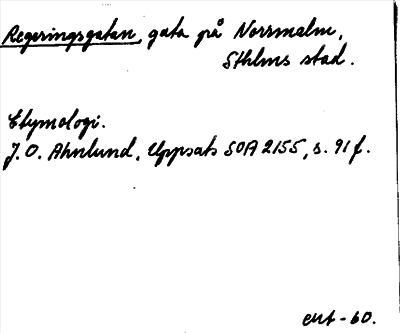 Regeringsgatan, gata på Norrmalm,
Sthlms stad.
Etymologi.
J. O. Ahnlund, Uppsats SOA 2155, s. 91 f.
eut-60.